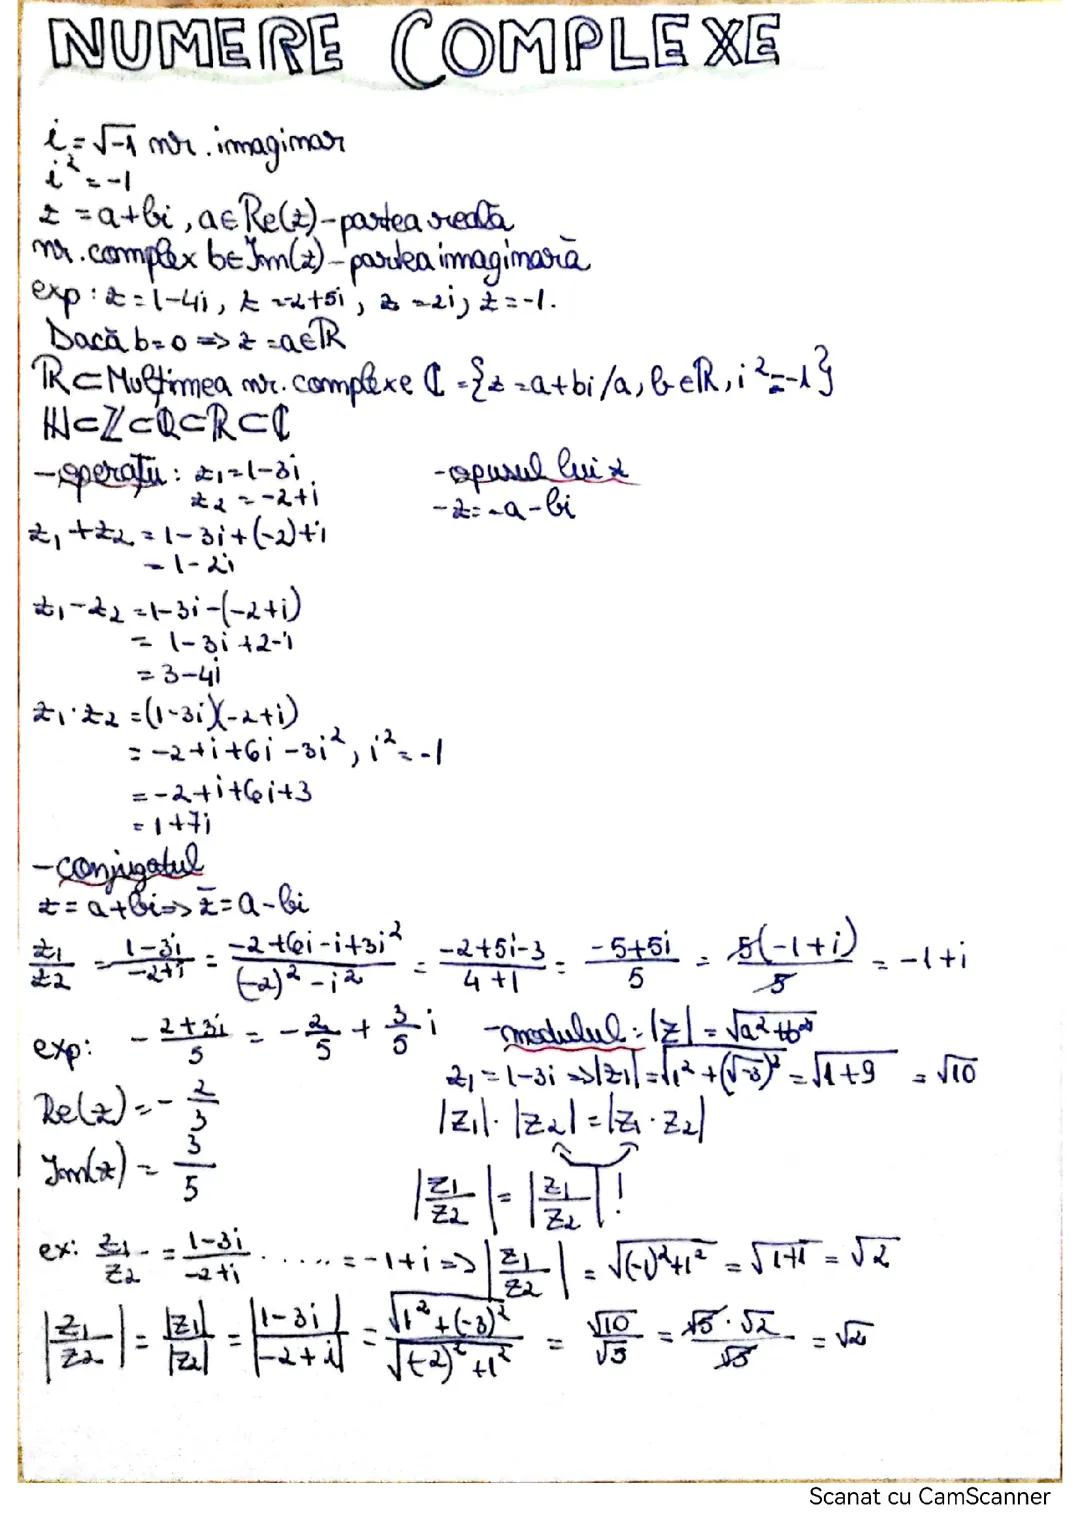 NUMERE COMPLEXE
i = √-1 nr. imaginar
i² = -1
z = a+bi, a∈Re(z) - partea reală
nr. complex b∈Im(z) - partea imaginară
exp: z = 1-4i, z = -2+5i, z = 2i, z = -1.
Dacă b=0 => z = a∈ℝ
ℝ⊂Mulțimea nr. complexe ℂ = {z = a+bi/a, b∈ℝ, i² = -1}
ℕ⊂ℤ⊂ℚ⊂ℝ⊂ℂ
- operații: z₁ = 1-3i
z₂ = -2+i
- opusul lui z
-z = -a-bi
z₁+z₂ = 1-3i+(-2)+i
= 1-2i
z₁-z₂ = 1-3i-(-2+i)
= 1-3i+2-i
= 3-4i
z₁·z₂ = (1-3i)(-2+i)
= -2+i+6i-3i², i² = -1
= -2+i+6i+3
= 1+7i
- conjugatul
z = a+bi => z̄ = a-bi
z₁/z₂ = (1-3i)/(-2+i) = (-2+6i-i+3i²)/((-2)²-i²) = (-2+5i-3)/(4+1) = (-5+5i)/5 = 5(-1+i)/5 = -1+i
exp: -(2+3i)/5 = -2/5 + 3/5 i
Re(z) = -2/3
Im(z) = 3/5
- modulul: |z| = √(a²+b²)
z₁ = 1-3i => |z₁| = √(1²+(√-3)²) = √(1+9) = √10
|z₁|·|z₂| = |z₁·z₂|
|z₁/z₂| = |z₁/z₂| !
ex: z₁/z₂ = (1-3i)/(-2+i) ...... = -1+i => |z₁/z₂| = √((-1)²+1²) = √(1+1) = √2
|z₁/z₂| = |z₁|/|z₂| = |1-3i|/|-2+i| = √(1²+(-3)²)/√((-2)²+1²) = √10/√5 = √5·√2/√5 = √2
Scanat cu CamScanner